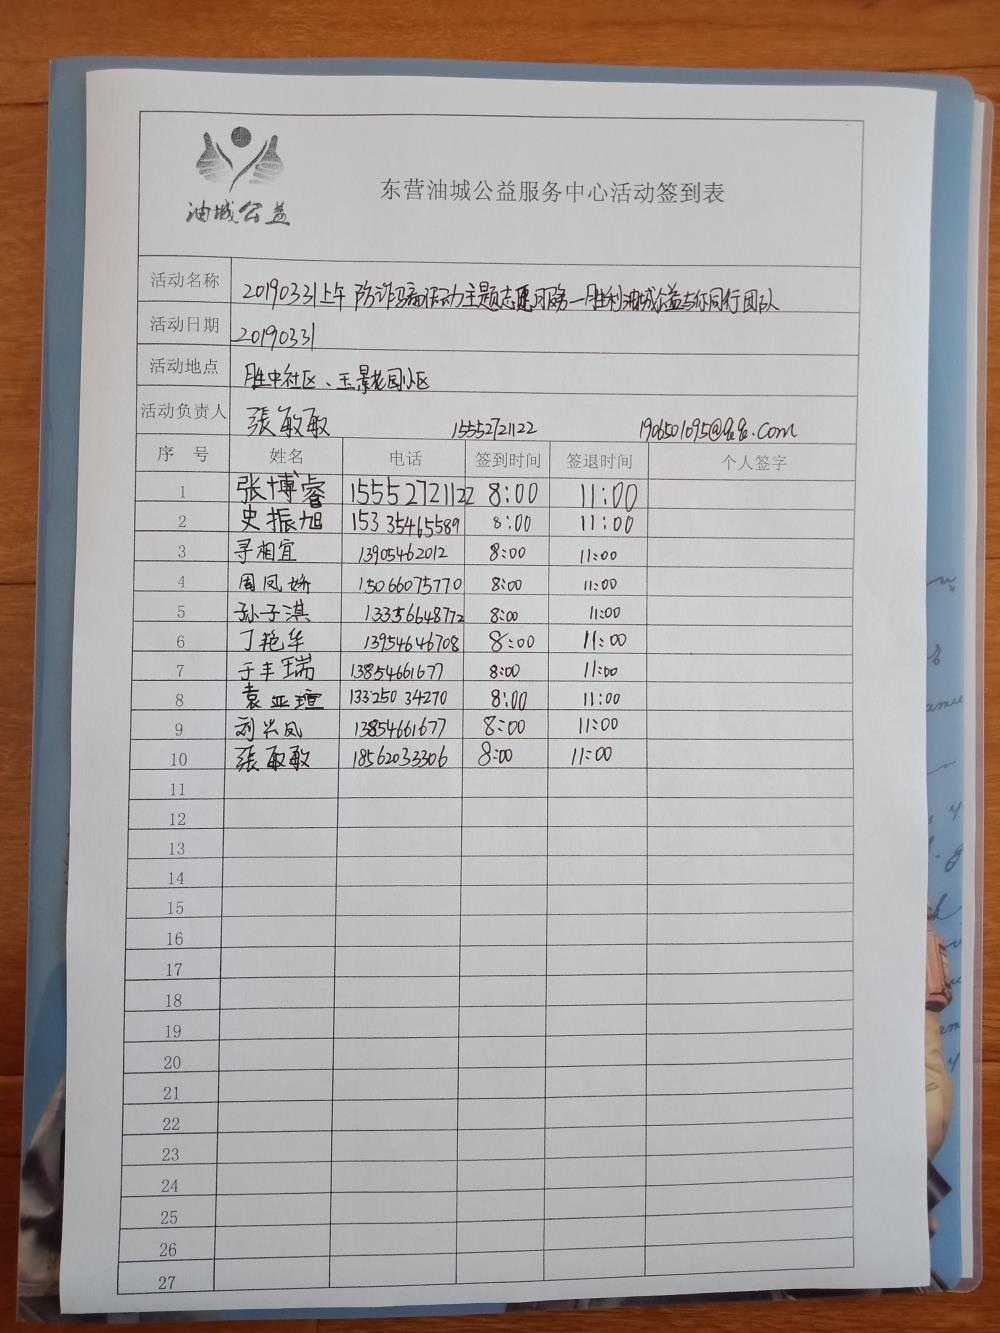 油城公益
东营油城公益服务中心活动签到表
活动名称 20190331上午 防诈骗 活动主题志愿 胜利油城公益与你同行团队
活动日期 20190331
活动地点 胜中社区、玉景花园小区
活动负责人 張敏敏 15552721122 1906501095@qq.com
序 号 姓名 电话 签到时间 签退时间 个人签字
1 张博睿 15552721122 8:00 11:00
2 史振旭 15335465589 8:00 11:00
3 寻相宜 13905462012 8:00 11:00
4 周凤娇 15066075770 8:00 11:00
5 孙子淇 13356648772 8:00 11:00
6 丁艳华 13954646708 8:00 11:00
7 于丰瑞 13854661677 8:00 11:00
8 袁亚瑄 13325034270 8:00 11:00
9 刘兴凤 13854661677 8:00 11:00
10 張敏敏 18562033306 8:00 11:00
11
12
13
14
15
16
17
18
19
20
21
22
23
24
25
26
27